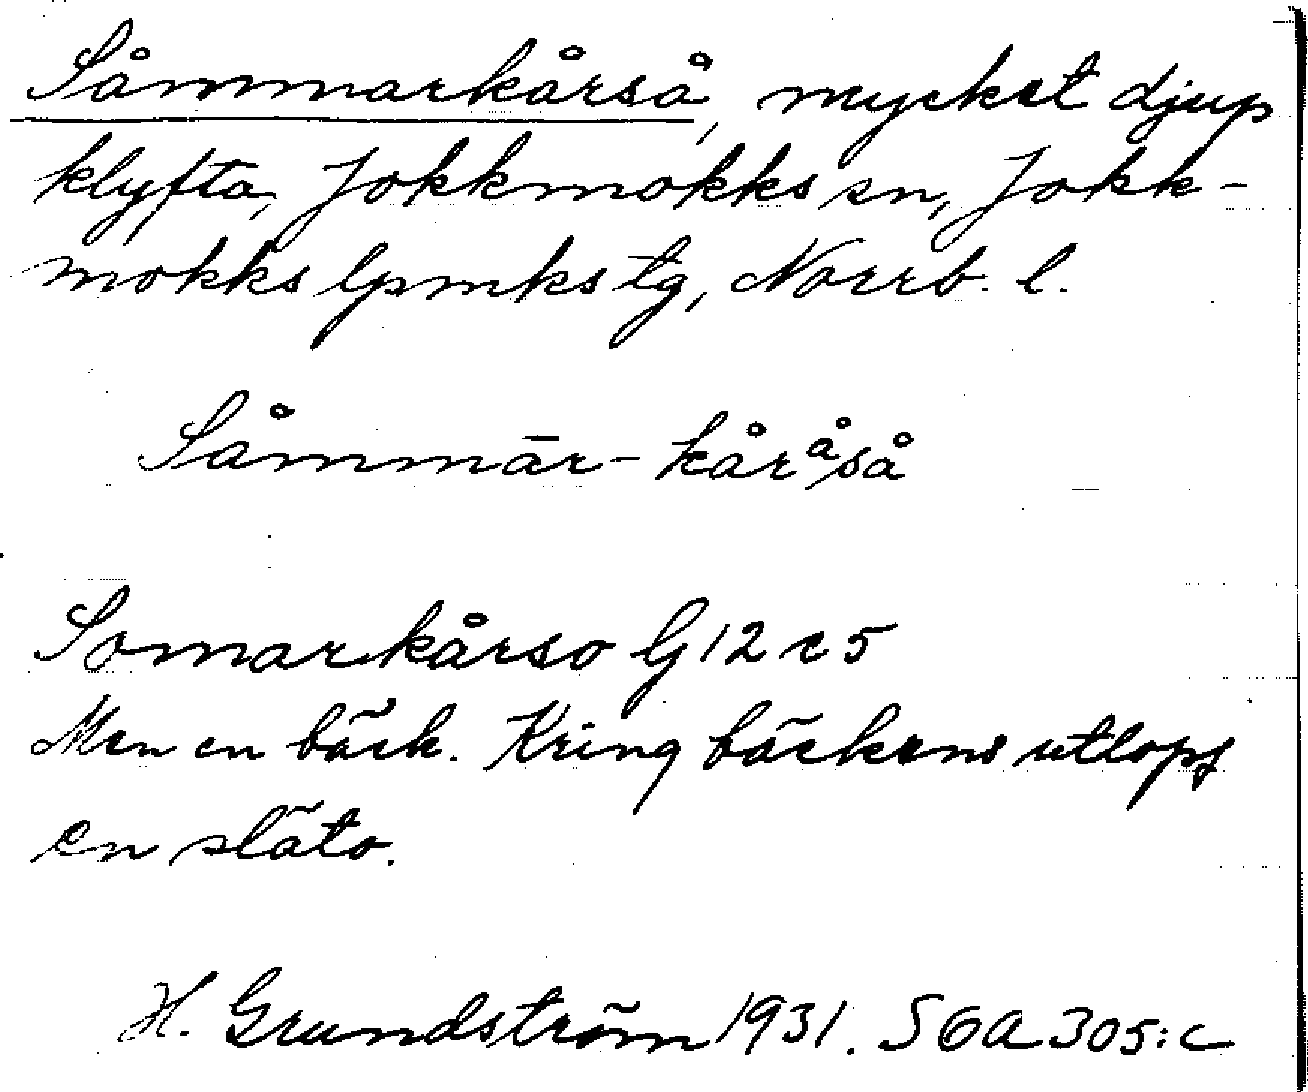 Såmmarkårså, mycket djup
klyfta, Jokkmokks sn, Jokk-
mokks lpmks tg, Norrb. l.
Såmmār-kåråså
Somarkårso G 12 c 5
Men en bäck. Kring bäckens utlopp
en släto.
H. Grundström 1931. SOA 305:c